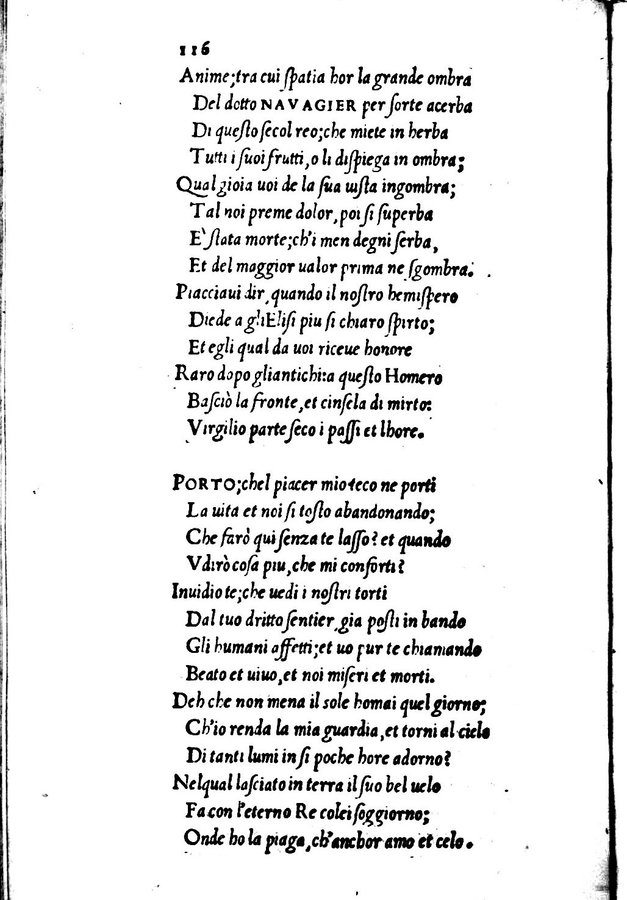 116
Anime;tra cui ſpatia hor la grande ombra
Del dotto NAVAGIER per ſorte acerba
Di queſto ſecol reo;che miete in herba
Tutti i ſuoi frutti,o li diſpiega in ombra;
Qual gioia uoi de la ſua uiſta ingombra;
Tal noi preme dolor,poi ſi ſuperba
E' ſtata morte;ch'i men degni ſerba,
Et del maggior ualor prima ne ſgombra.
Piacciaui dir,quando il noſtro hemiſpero
Diede a gliEliſi piu ſi chiaro ſpirto;
Et egli qual da uoi riceue honore
Raro dopo gliantichi:a queſto Homero
Baſciò la fronte,et cinſela di mirto:
Virgilio parte ſeco i paſſi et lhore.
PORTO;chel piacer mio teco ne porti
La uita et noi ſi toſto abandonando;
Che farò qui ſenza te laſſo? et quando
Vdirò coſa piu,che mi conforti?
Inuidio te;che uedi i noſtri torti
Dal tuo dritto ſentier,gia poſti in bando
Gli humani affetti;et uo pur te chiamando
Beato et uiuo,et noi miſeri et morti.
Deh che non mena il sole homai quel giorno;
Ch'io renda la mia guardia,et torni al cielo
Di tanti lumi in ſi poche hore adorno?
Nelqual laſciato in terra il ſuo bel uelo
Fa con l'eterno Re colei ſoggiorno;
Onde ho la piaga,ch'anchor amo et celo.